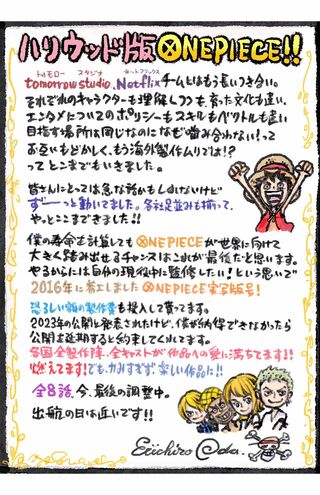 ハリウッド版 ONEPIECE!!
トゥモロー スタジオ ネットフリックス
tomorrow studio、Netflixチームとはもう長いつき合い。
それぞれのキャラクターも理解しつつも、育った文化も違い、
エンタメについてのポリシーもスキルもベクトルも違い
目指す場所は同じなのになぜ噛み合わない!って
お互いもどかしく、もう海外製作ムリでは!?
ってとこまでもいきました。
皆さんにとっては急な話かもしれないけど
ずーっと動いてました。各社足並みも揃って、
やっとここまできました!!
僕の寿命を計算しても ONEPIECEが世界に向けて
大きく踏み出せるチャンスはこれが最後だと思います。
やるからには自分の現役中に監修したい!という思いで
2016年に着工しました ONEPIECE実写版号!
恐ろしい額の製作費も投入して貰ってます。
2023年の公開と発表されたけど、僕が納得できなかったら
公開は延期すると約束してくれてます。
各国全製作陣、全キャストが作品への愛に満ちてます!!
燃えてます!でも力みすぎず、楽しい作品に!!
全8話、今、最後の調整中。
出航の日は近いです!!
Eiichiro Oda.